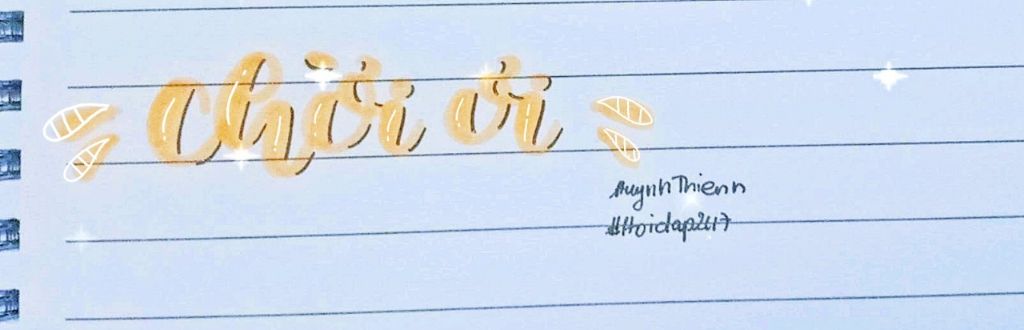 chời ơi
HuynhThienn
#Hoidap247